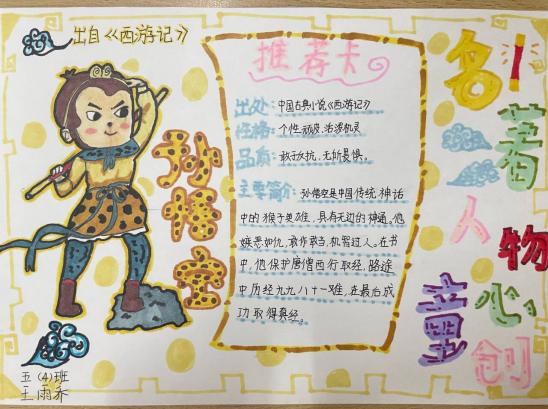 出自《西游记》
孙悟空
推荐卡
出处：中国古典小说《西游记》
性格：个性顽皮、活泼机灵
品质：敢于反抗，无所畏惧。
主要简介：孙悟空是中国传统神话
中的猴子英雄，具有无边的神通。他
嫉恶如仇，敢作敢当，机智过人。在书
中，他保护唐僧西行取经，路途
中历经九九八十一难，在最后成
功取得真经。
名著人物
童心创
五（4）班
王雨乔